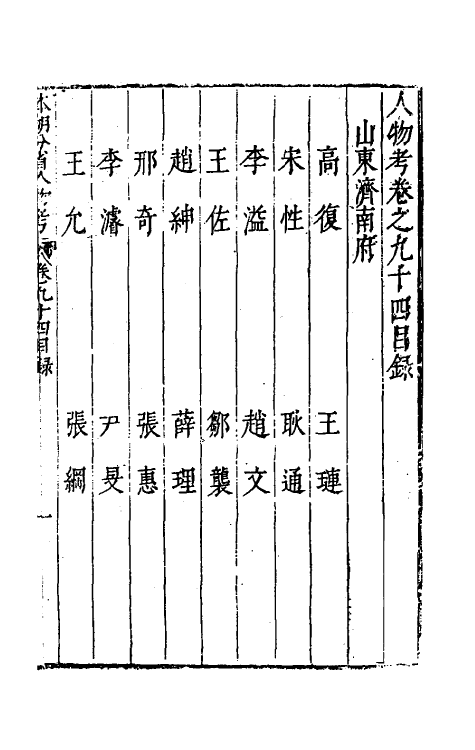 人物考卷之九十四目録
山東濟南府
高復 王璉
宋性 耿通
李溢 趙文
王佐 鄒襲
趙紳 薛理
邢奇 張惠
李濬 尹旻
王允 張綱
本朝分省人物考 卷九十四目録 一